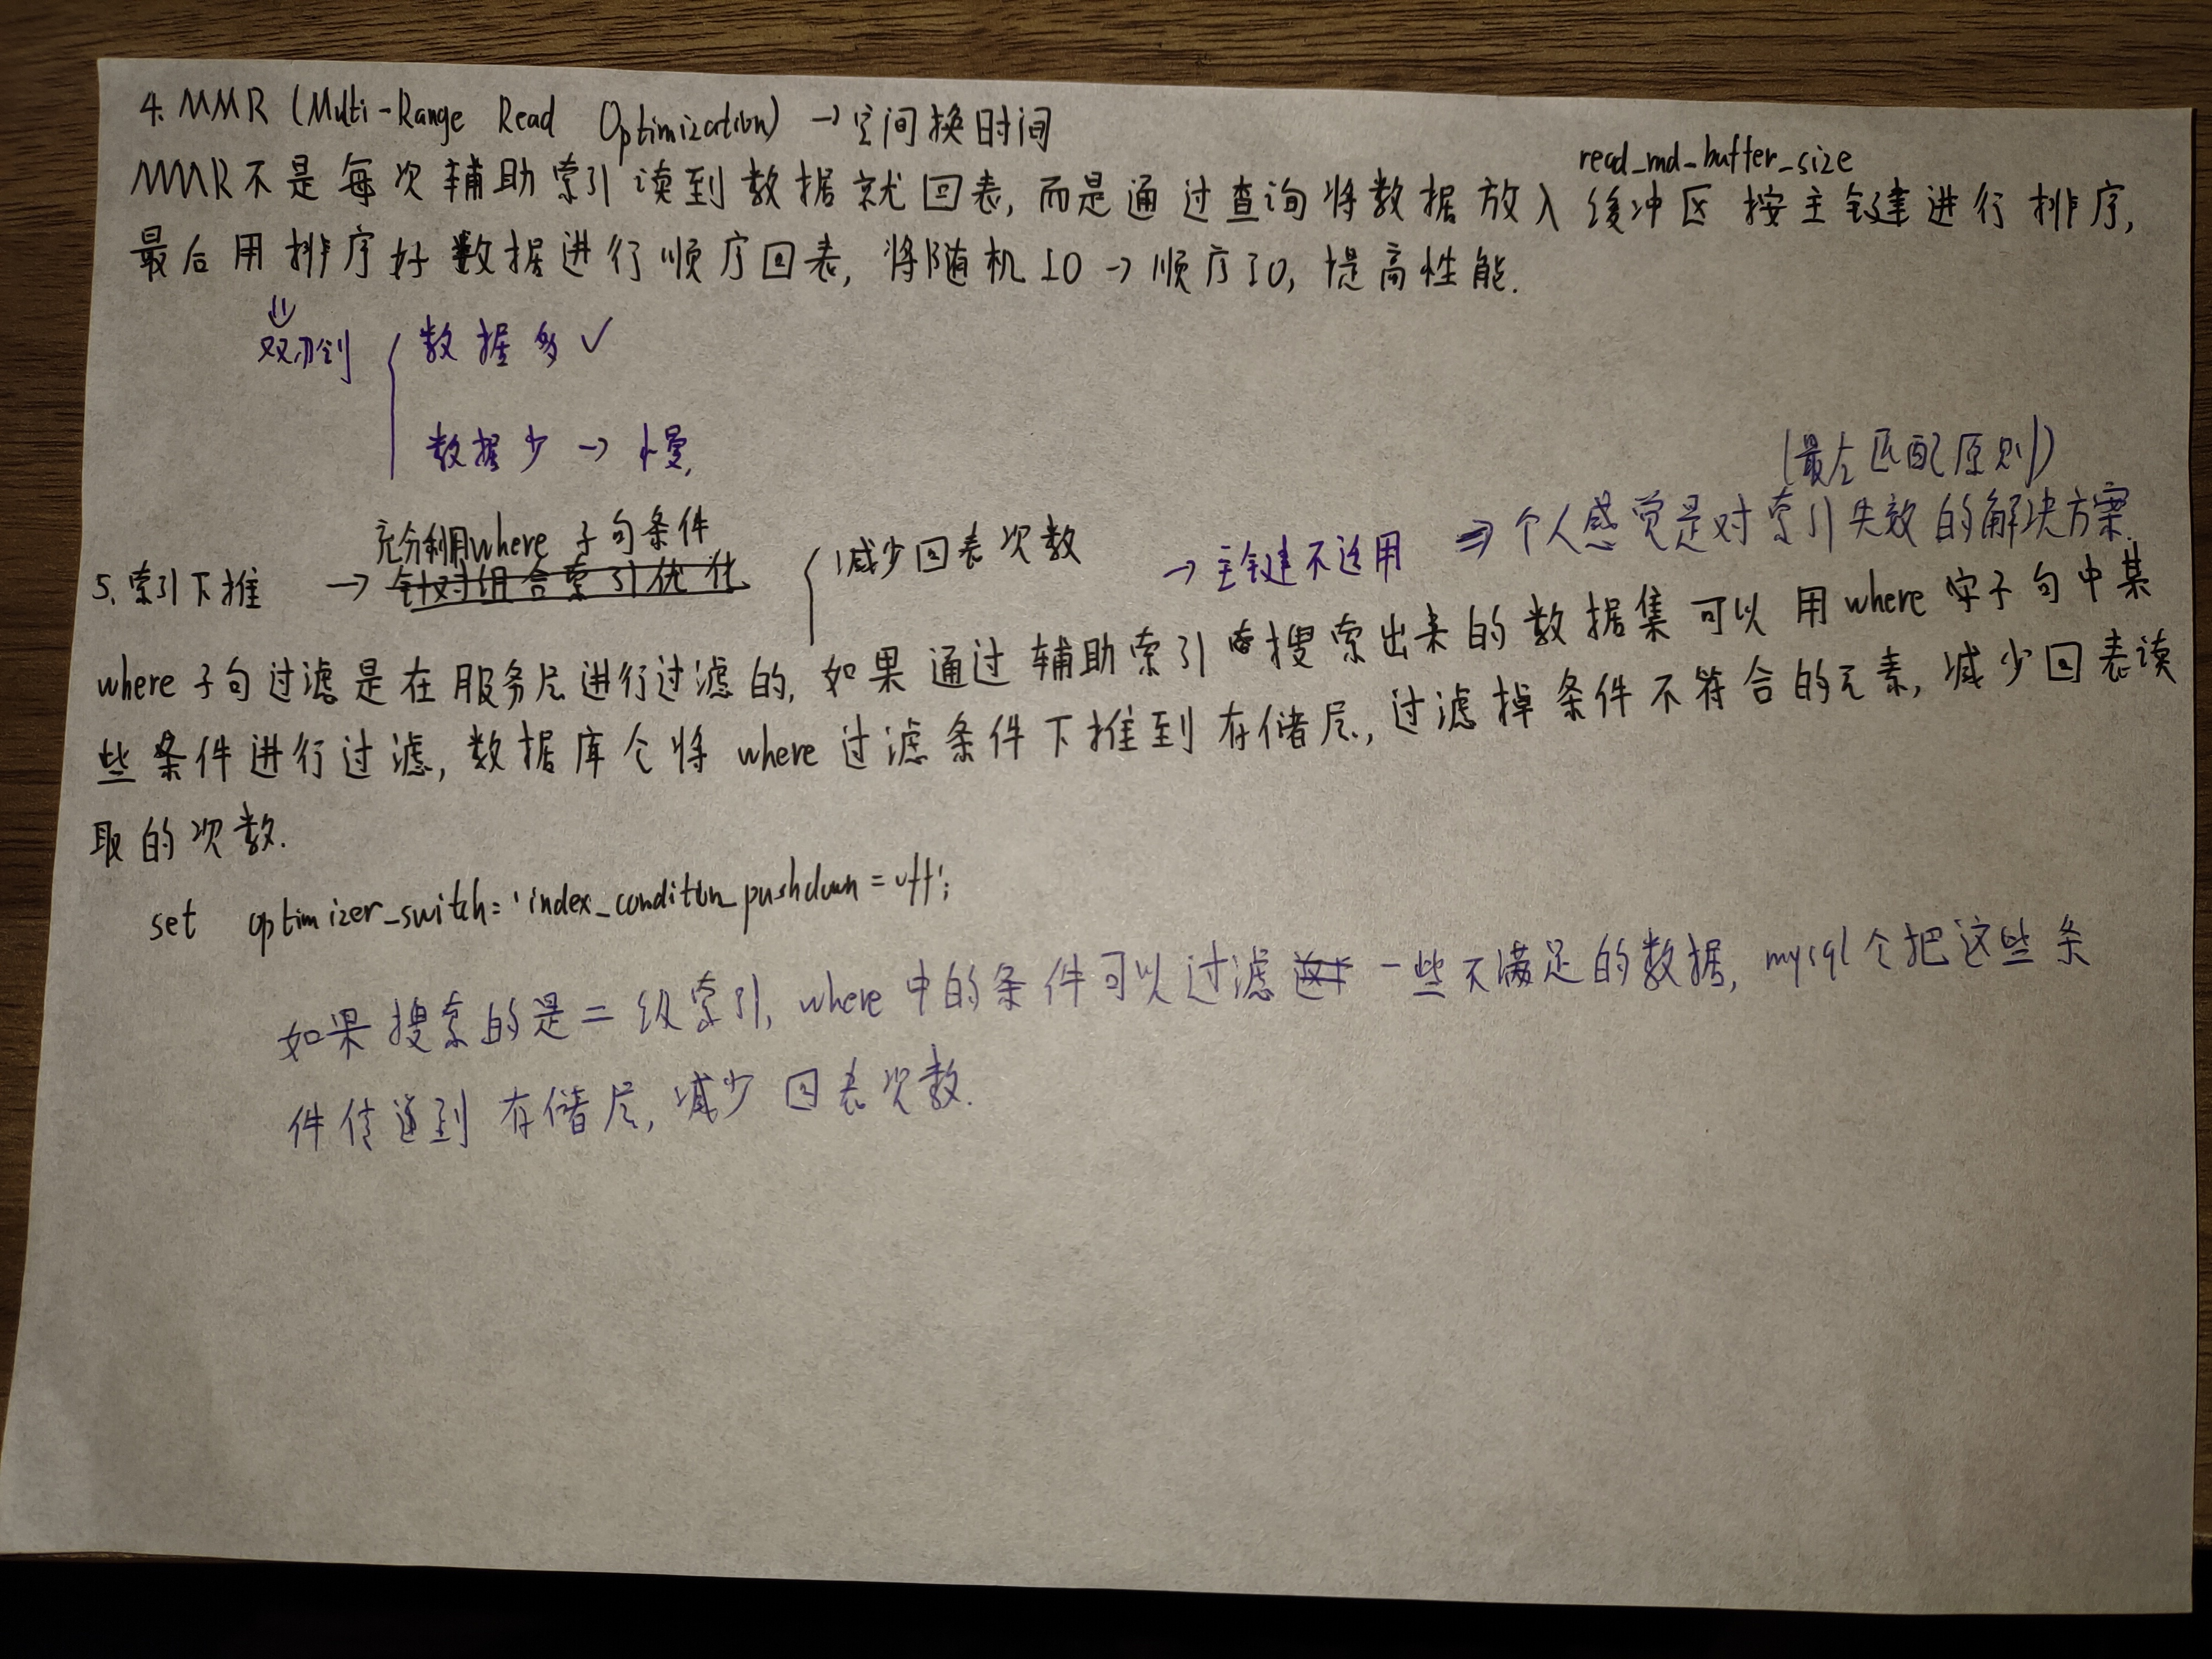 4. MMR (Multi-Range Read Optimization) → 空间换时间
read_rnd_buffer_size
MMR不是每次辅助索引读到数据就回表, 而是通过查询将数据放入缓冲区按主键进行排序,
最后用排序好数据进行顺序回表, 将随机IO → 顺序IO, 提高性能.
⇓
双刃剑 { 数据多 ✓
数据少 → 慢.
(最左匹配原则)
充分利用where子句条件
5. 索引下推 → 针对组合索引优化 { 减少回表次数 → 主键不适用 ⇒ 个人感觉是对索引失效的解决方案.
where子句过滤是在服务层进行过滤的, 如果通过辅助索引搜索出来的数据集可以用where 子句中某
些条件进行过滤, 数据库会将where过滤条件下推到存储层, 过滤掉条件不符合的元素, 减少回表读
取的次数.
set optimizer_switch='index_condition_pushdown=off';
如果搜索的是二级索引, where中的条件可以过滤一些不满足的数据, mysql会把这些条
件传递到存储层, 减少回表次数.